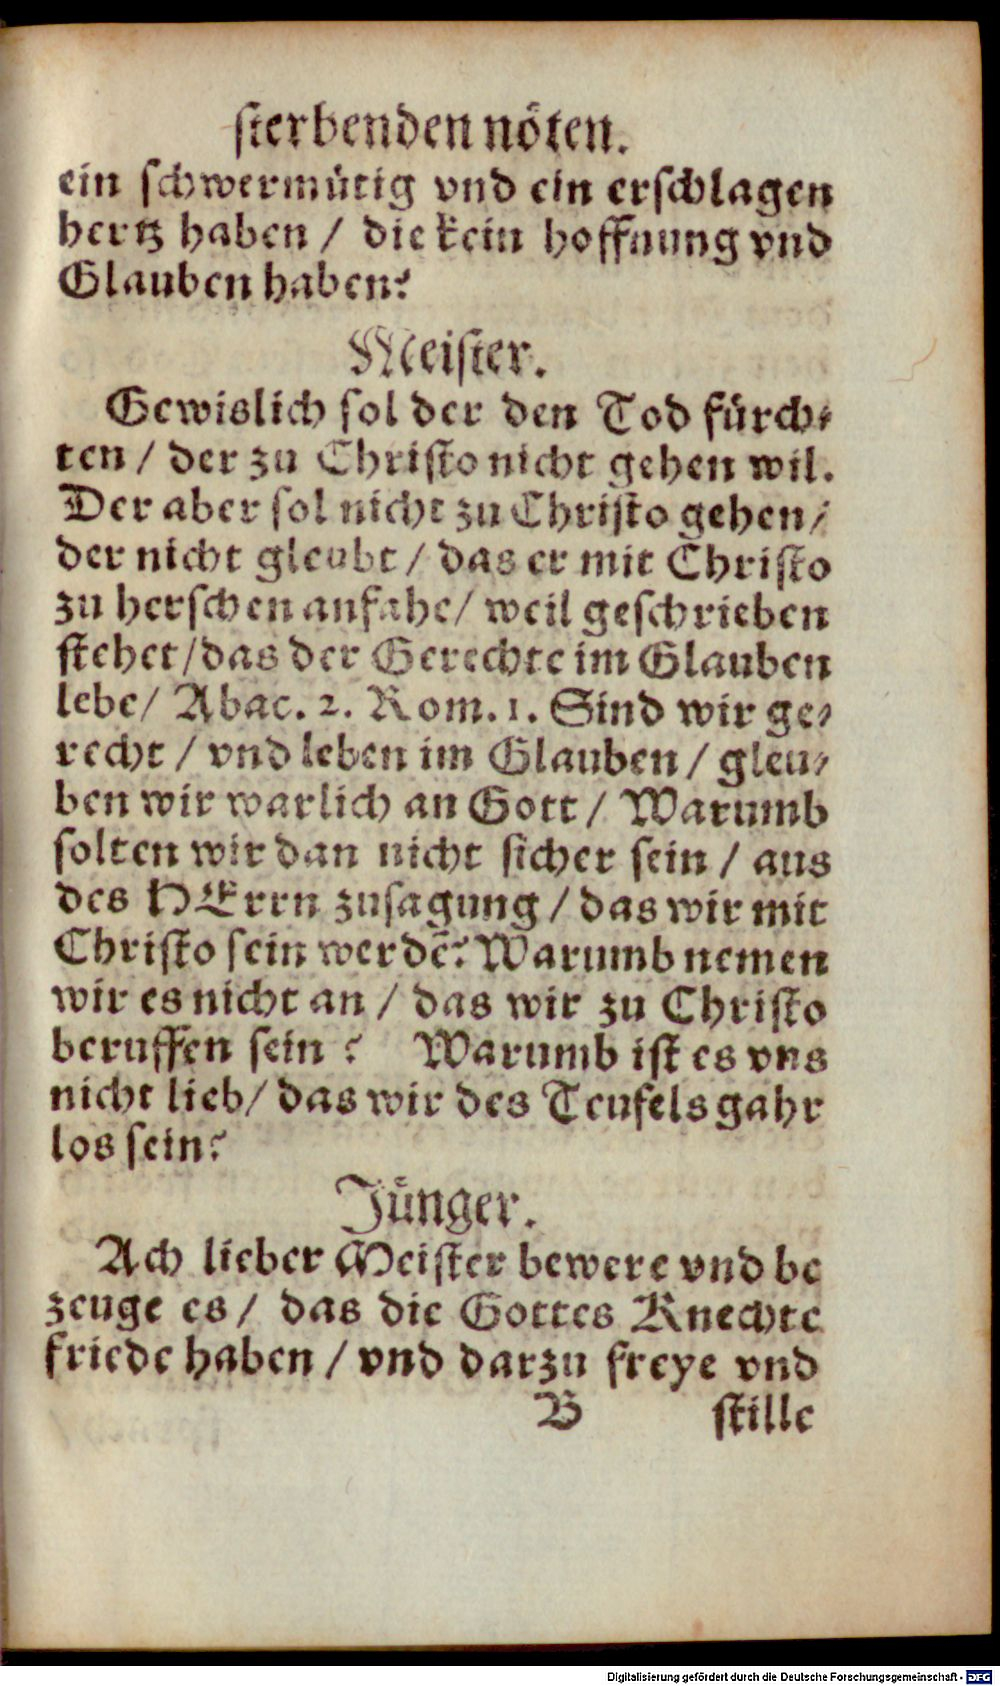 sterbenden nöten.
ein schwermütig vnd ein erschlagen
hertz haben / die kein hoffnung vnd
Glauben haben?
Meister.
Gewislich sol der den Tod fürch-
ten / der zu Christo nicht gehen wil.
Der aber sol nicht zu Christo gehen /
der nicht gleubt / das er mit Christo
zu herschen anfahe / weil geschrieben
stehet / das der Gerechte im Glauben
lebe / Abac. 2. Rom. 1. Sind wir ge-
recht / vnd leben im Glauben / gleu-
ben wir warlich an Gott / Warumb
solten wir dan nicht sicher sein / aus
des HErrn zusagung / das wir mit
Christo sein werdē? Warumb nemen
wir es nicht an / das wir zu Christo
beruffen sein? Warumb ist es vns
nicht lieb / das wir des Teufels gahr
los sein?
Jünger.
Ach lieber Meister bewere vnd be
zeuge es / das die Gottes Knechte
friede haben / vnd darzu freye vnd
B stille
Digitalisierung gefördert durch die Deutsche Forschungsgemeinschaft - DFG